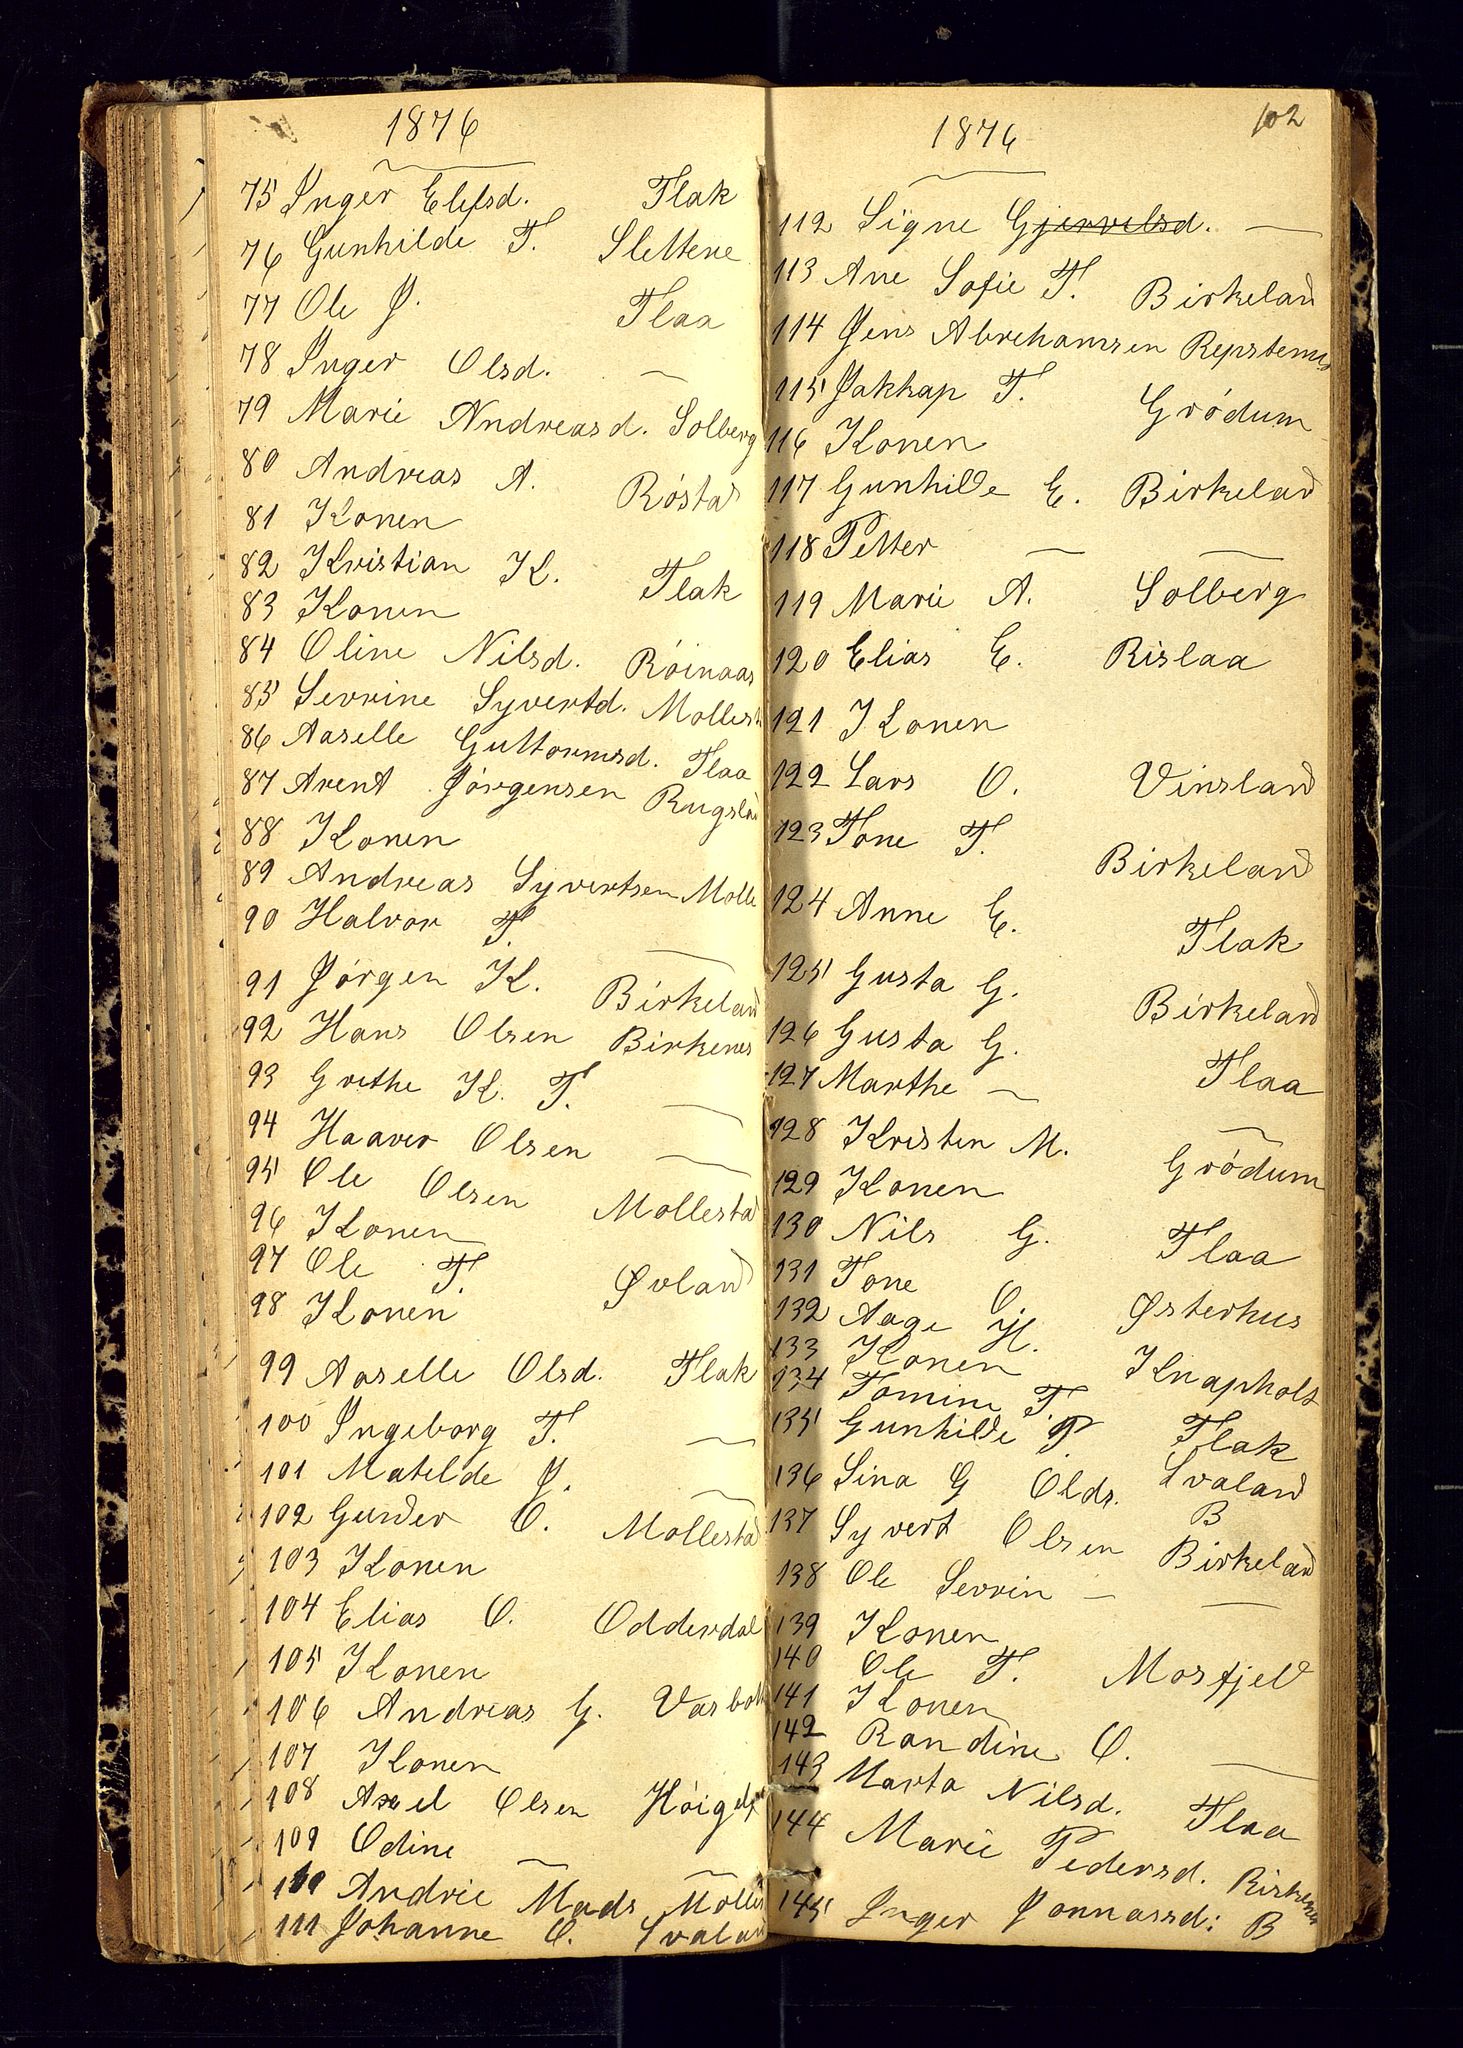 1876
75 Inger Elefsd. Flak
76 Gunhilde T. Slettene
77 Ole J. Flaa
78 Inger Olsd. —
79 Marie Andreasd. Solberg
80 Andreas A. Røstad
81 Konen
82 Kristian K. Flak
83 Konen
84 Oline Nilsd. Røinaas
85 Sevrine Syvertd. Mollest
86 Aaselle Guttormsd. Flaa
87 Arent Jørgensen Rugsla
88 Konen
89 Andreas Syvertsen Molle
90 Halvor T. —
91 Jørgen K. Birkeland
92 Hans Olsen Birkenes
93 Grethe K. T. —
94 Haaver Olsen —
95 Ole Olsen Mollestad
96 Konen
97 Ole T. Øvland
98 Konen
99 Aaselle Olsd. Flak
100 Ingeborg T. —
101 Matilde J. —
102 Gunder O. Mollestad
103 Konen
104 Elias O. Odderdal
105 Konen
106 Andreas G. Vasbot
107 Konen
108 Axel Olsen Høig
109 Odine — —
110 Andrie Mads Molles
111 Johanne O. Svaland
102
1876
112 Signe Gjervelsd. —
113 Ane Sofie T. Birkeland
114 Jens Abrehamsen Repstemes
115 Jakkap T. Grødum
116 Konen
117 Gunhilde E. Birkeland
118 Petter — —
119 Marie A. Solberg
120 Elias E. Rislaa
121 Konen
122 Lars O. Vinsland
123 Tone T. Birkeland
124 Anne E. Flak
125 Gusta G. Birkeland
126 Gusta G. Flaa
127 Marthe — —
128 Kristen M. Grødum
129 Konen
130 Nils G. Flaa
131 Tone O. Østerhus
132 Aage H. Knapholt
133 Konen
134 Tomine T. Flak
135 Gunhilde P. Svaland
136 Sina G Olds. B
137 Syvert Olsen Birkeland
138 Ole Sevrin — —
139 Konen
140 Ole T. Mosfjeld
141 Konen
142 Randine O. —
143 Marta Nilsd. Flaa
144 Marie Pedersd. Birkenes
145 Inger Jonnassd: B